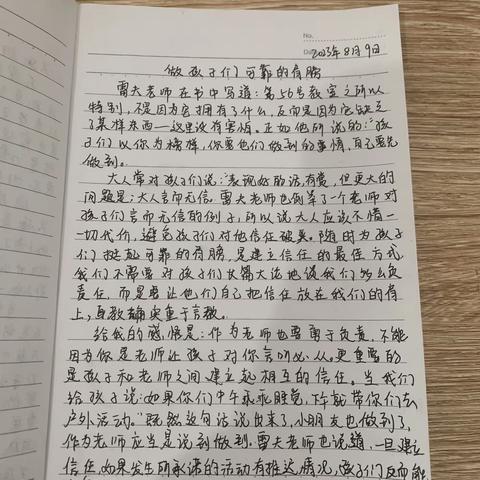 No.
Date 2023年8月9日
做孩子们可靠的肩膀
雷夫老师在书中写道:第56号教室之所以
特别,不是因为它拥有了什么,反而是因为它缺乏
了某样东西——这里没有害怕。正如他所说的:"孩
子们以你为榜样,你要他们做到的事情,自己要先
做到。
大人常对孩子们说:表现好的话,有赏,但更大的
问题是:大人言而无信。雷夫老师也例举了一个老师对
孩子们言而无信的例子,所以说大人应该不惜一
切代价,避免孩子们对他信任破灭。随时为孩子
们挺起可靠的肩膀,是建立信任的最佳方式,
我们不需要对孩子们长篇大论地说我们多么负
责任,而是要让他们自己把信任放在我们的肩
上,身教确实重于言教。
给我的感悟是:作为老师也要勇于负责,不能
因为你是老师让孩子对你言听必从。更重要的
是孩子和老师之间建立起相互的信任。当我们
给孩子说:如果你们中午乖乖睡觉,下午就带你们去
户外活动。"既然这句话说出来了,小朋友也做到了,
作为老师应当是说到做到。雷夫老师也说道,一旦建立
信任,如果发生所承诺的活动有推迟情况,孩子们反而能